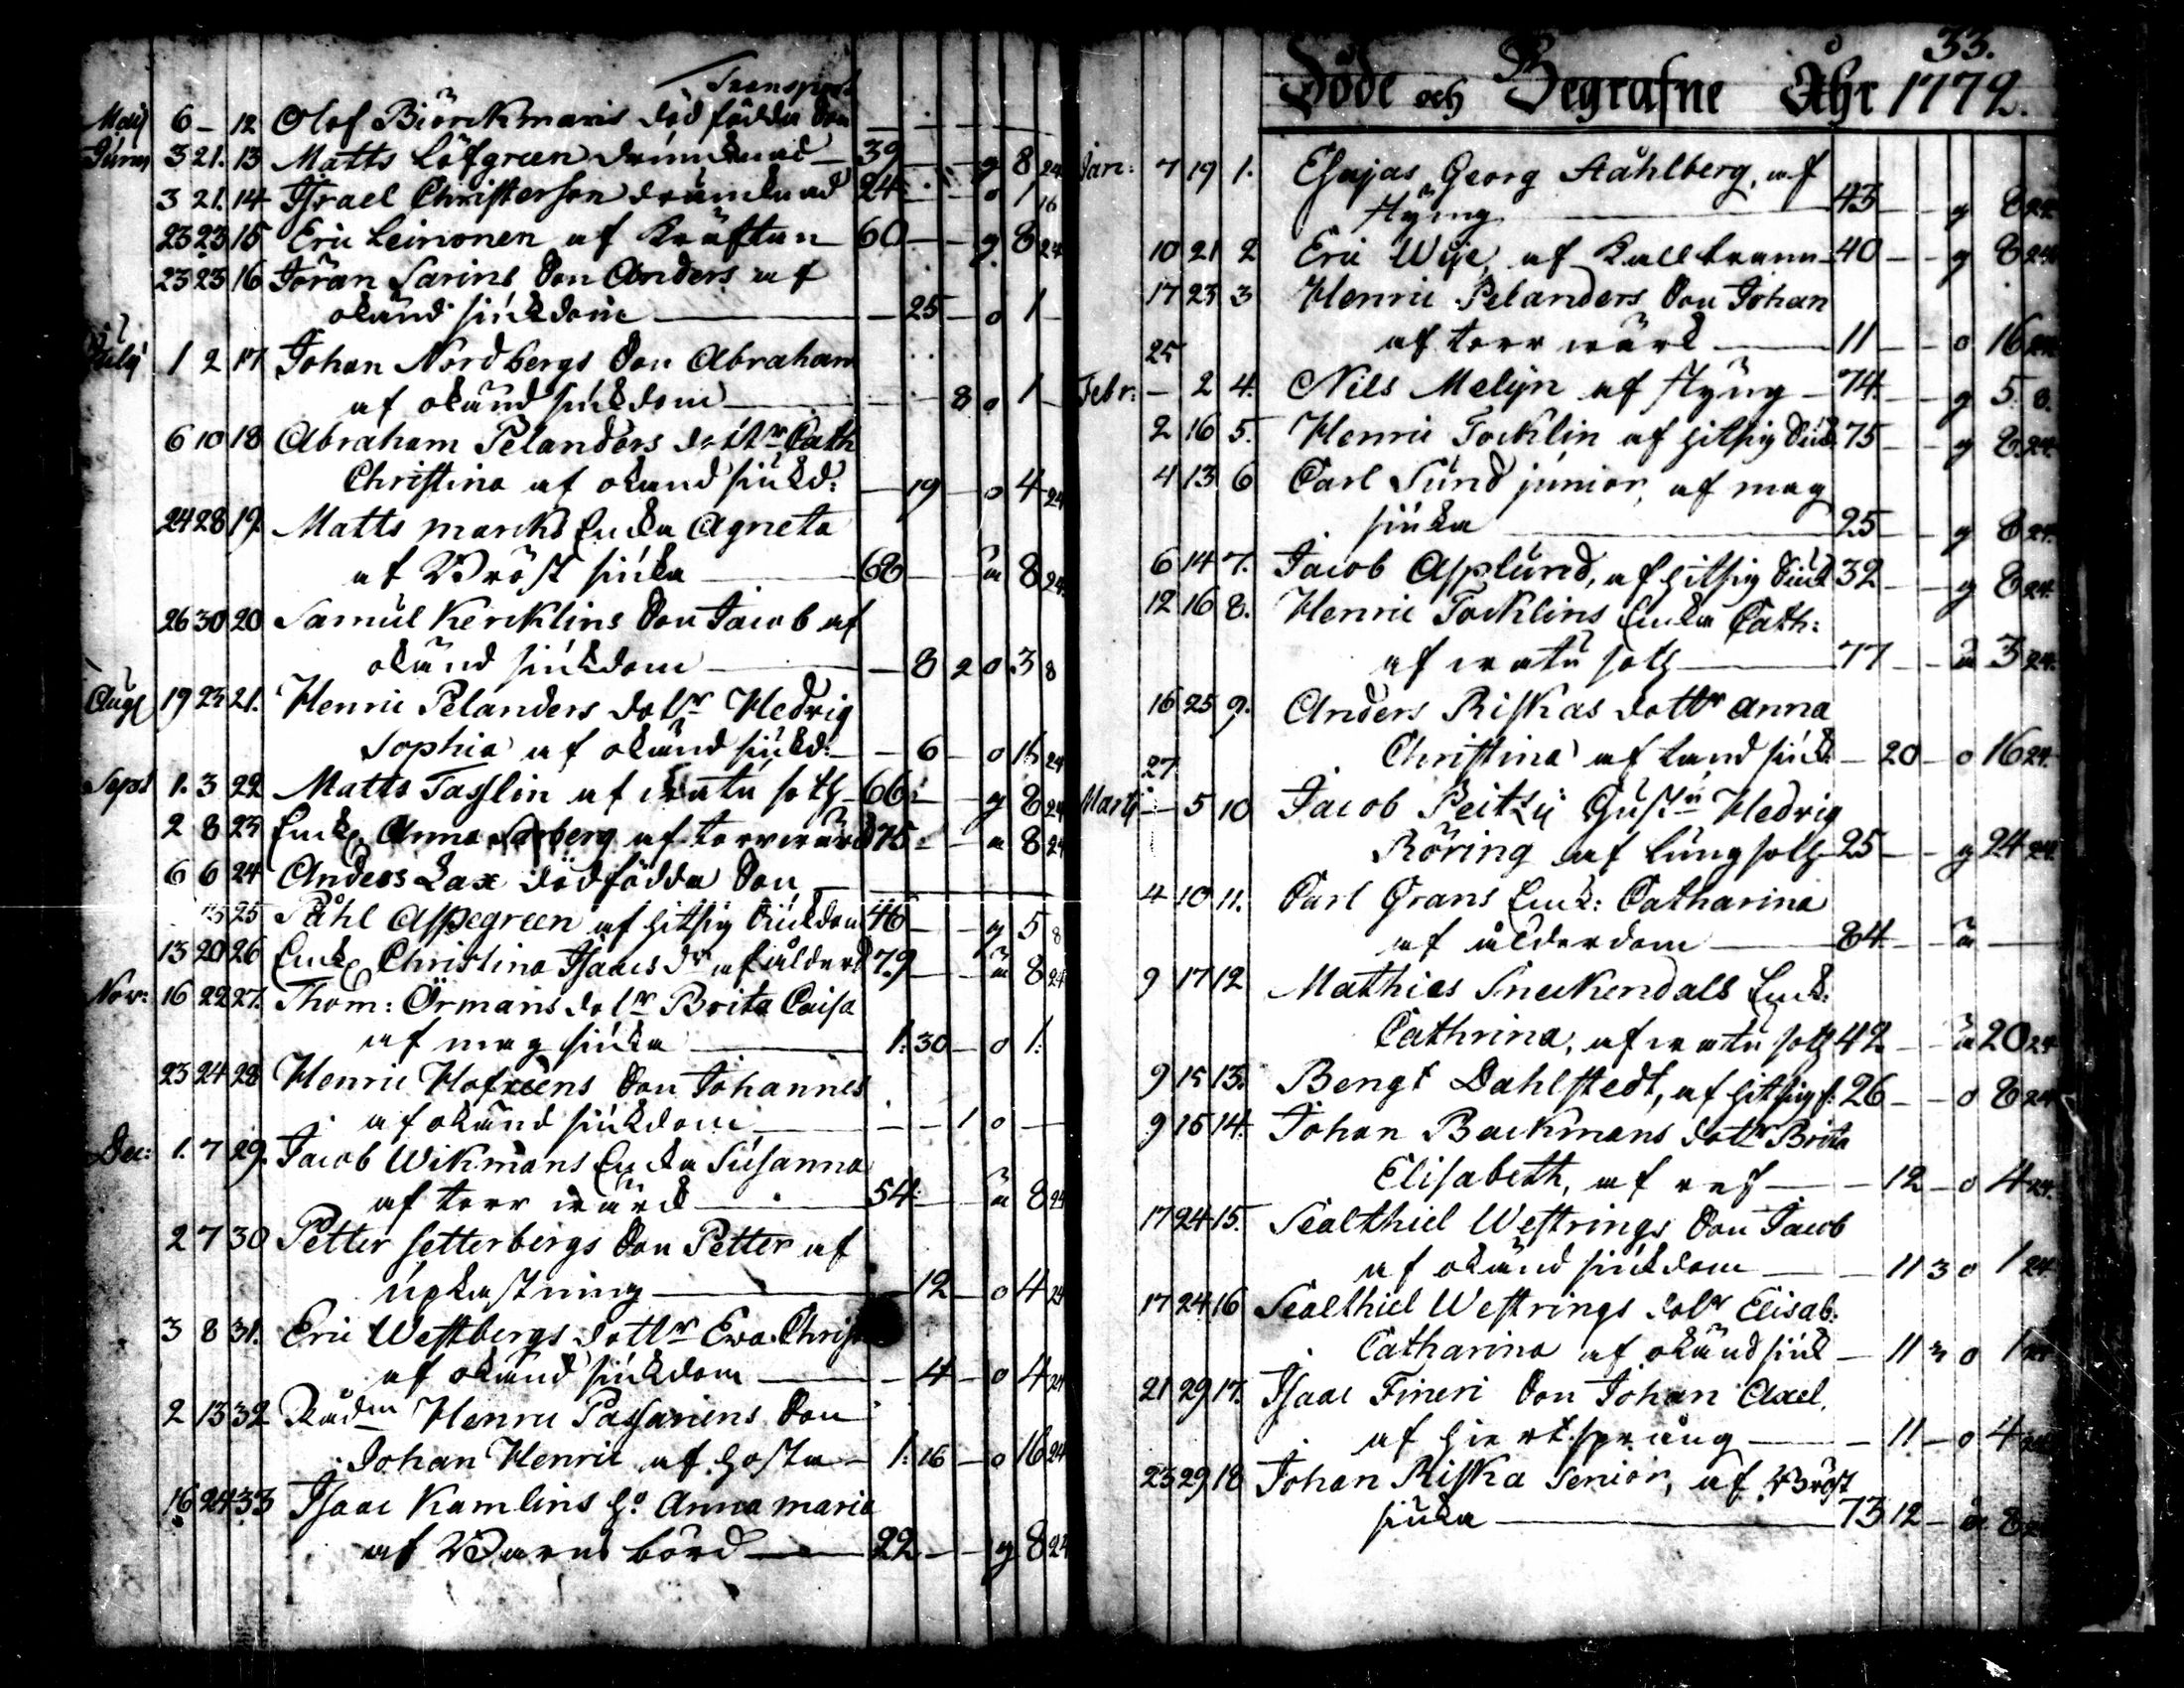 Transport
Maij 6 – 12 Olof Biörckmans död födda Son – – –
Junij 3 21. 13 Matts Löfgreen drunknad – 39 – – g 8 24
3 21. 14 Israel Christerson drunknad 24 – – o 1 16
23 23 15 Eric Leinonen af Kräftan – 60 – – g 8 24
23 23 16 Jöran Sarins Son Anders af
okänd siukdom – – 25 – o 1 –
July 1 2 17 Johan Nordbergs Son Abraham
af okänd siukdom – – – 8 o 1 –
6 10 18 Abraham Pelanders dottr Cath
Christina af okänd siukd: – 19 – o 4 24
24 28 19. Matts marcks Enka Agneta
af Bröst siuka – 68 – – ä 8 24.
26 30 20 Samul Kercklins Son Jacob af
okänd siukdom – – 8 2 o 3 8
Aug 19 23 21. Henric Pelanders dotr Hedvig
Sophia af okänd siukd: – – 6 – o 16 24
Sept 1. 3 22 Matts Tasslin af watu soth 66: – – g 8 24
2 8 23 Enk Anna berg af torrwärk 75: – – ä 8 24
6 6 24 Anders Lax dödfödda Son –
15 25 Påhl Aspegreen af hitsig Siukdom 46 – – g 5 8
13 20 26 Enk Christina Isaacs dr af ålderd 79 – – ä 8 24
Nov: 16 22 27. Thom: Örmans dotr Brita Caisa
af mag siuka – 1: 30 – o 1:
23 24 28 Henric Hofreens Son Johannes
af okänd siukdom – – – 1 o –
Dec: 1. 7 29. Jacob Wikmans Enka Susanna
af torr wärk – 54: – – ä 8 24
2 7 30 Petter Setterbergs Son Petter af
upkastning – – 12 – o 4 24
3 8 31. Eric Westbergs dottr Ewa Christ
af okänd siukdom – – 4 – o 4 24
2 13 32 Rådm Henric Son
Johan Henric af hosta – 1: 16 – o 16 24
16 24 33 Isaac Kamlins h: Anna maria
af Barns börd – 22 – – g 8 24
33.
Döde och Begrafne Åhr 1772.
Jan: 7 19 1. Esajas Georg Ståhlberg, af
styng – 43 – – g 8 24
10 21 2 Eric Wije, af Kallbrann – 40 – – g 8 24
17 23 3 Henric Pelanders Son Johan
25 af torr wärk – 11 – – o 16 24
Febr: – 2 4. Nils Melijn af styng – 74. – – g 5. 8.
2 16 5. Henric Tocklin af hitsig Siuk 75 – – g 8. 24.
4 13 6 Carl Sund junior, af mag
siuka – 25 – – g 8 24.
6 14 7. Jacob Asplund, af hitsig Siuk 32 – – g 8 24.
12 16 8. Henric Tocklins Enka Cath:
af watu soth – 77 – – ä 3 24.
16 25 9. Anders Riskas dottr Anna
27 Christina af land siuk – 20 – o 16 24.
Martij – 5 10 Jacob Peitzij Hustru Hedvig
Röring af lungsoth – 25 – – g 24 24.
4 10 11. Carl Grans Enk: Catharina
af ålderdom – 84. – – ä –
9 17 12 Mathies Sneckendals Enk:
Cathrina, af watu soth 42 – – ä 20 24
9 15 13. Bengt Dahlstedt, af hitsig s: 26 – – o 8 24
9 15 14. Johan Backmans dottr Brita
Elisabeth, af – – 12 – o 4 24.
17 24 15. Sealthiel Westrings Son Jacob
af okänd siukdom – – 11 3 o 1 24.
17 24 16 Sealthiel Westrings dotr Elisab:
Catharina af okänd siuk – 11 3 o 1 24
21 29 17. Isaac Fineri Son Johan Axel.
af hiertsprång – – 11 – o 4 24
23 29 18 Johan Riska Senior, af Bröst
siuka – 73 12 – ä 8 24